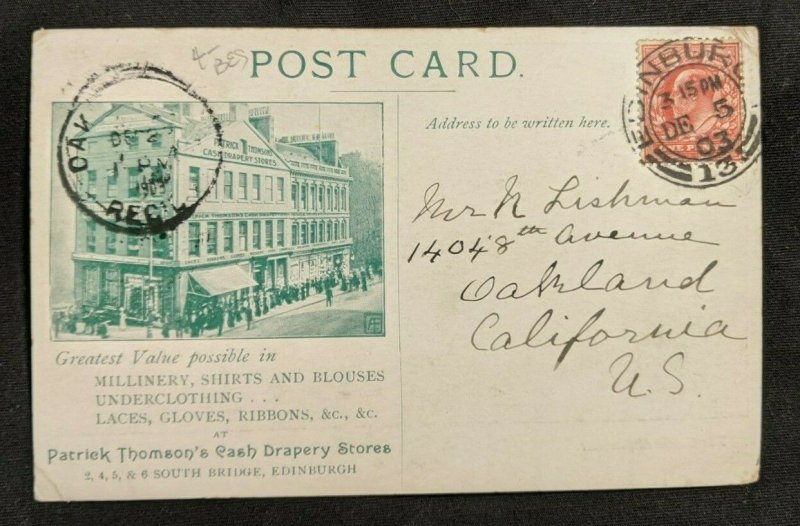 POST CARD.
EDINBURGH
3 15 PM
DE 5
03
13
OAK
DEC
1903
REC'D.
PATRICK THOMSON'S
CASH DRAPERY STORES
Address to be written here.
Mr N Lishman
1404 8th Avenue
Oakland
California
U.S.
Greatest Value possible in
MILLINERY, SHIRTS AND BLOUSES
UNDERCLOTHING . . .
LACES, GLOVES, RIBBONS, &c., &c.
AT
Patrick Thomson's Cash Drapery Stores
2, 4, 5, & 6 SOUTH BRIDGE, EDINBURGH